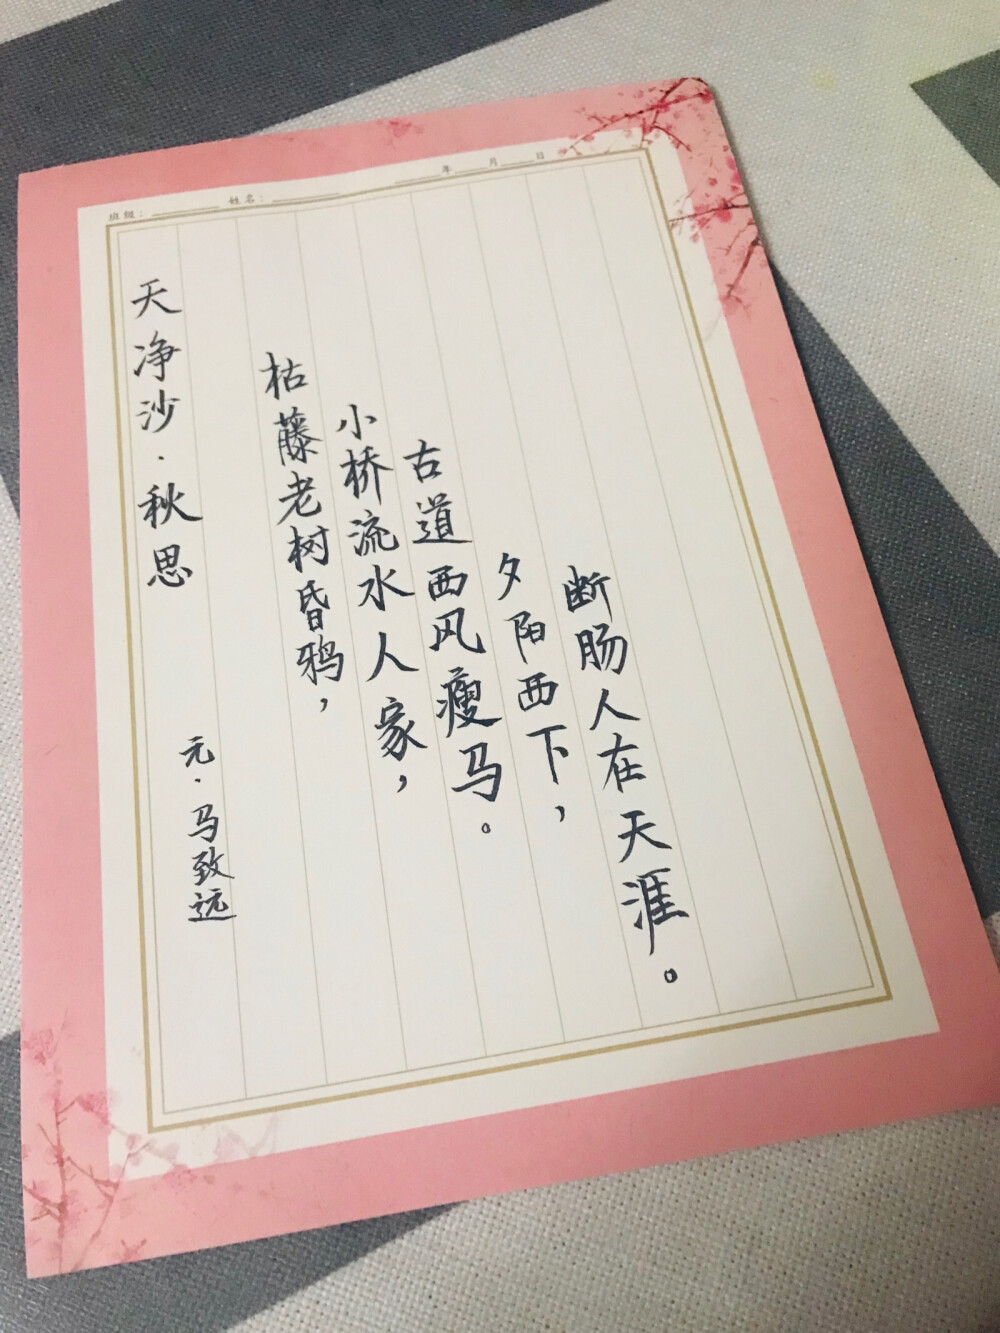 班级： 姓名： 年 月 日
天净沙·秋思
元·马致远
枯藤老树昏鸦，
小桥流水人家，
古道西风瘦马。
夕阳西下，
断肠人在天涯。